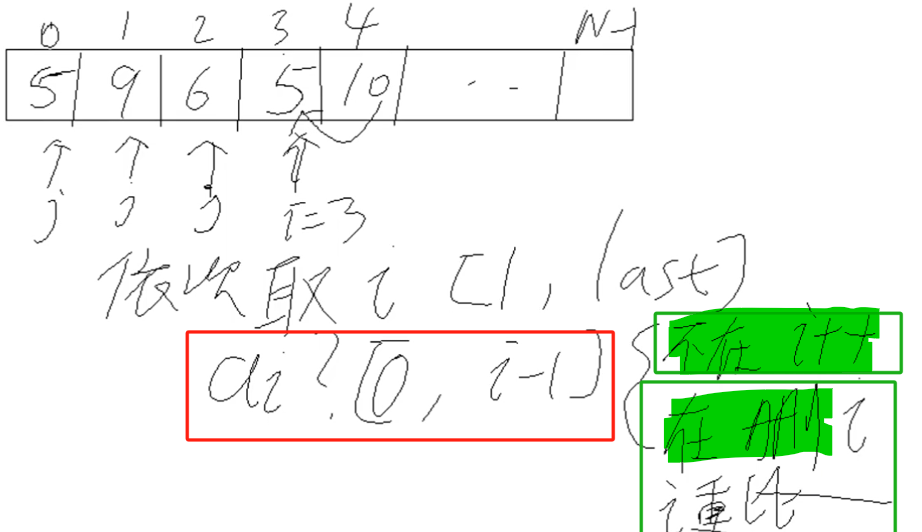 0 1 2 3 4 N-1
5 9 6 5 10 ..
j j j i=3
依次取 i [1, last]
ai? [0, i-1]
不在 i++
在 删 i
i重比